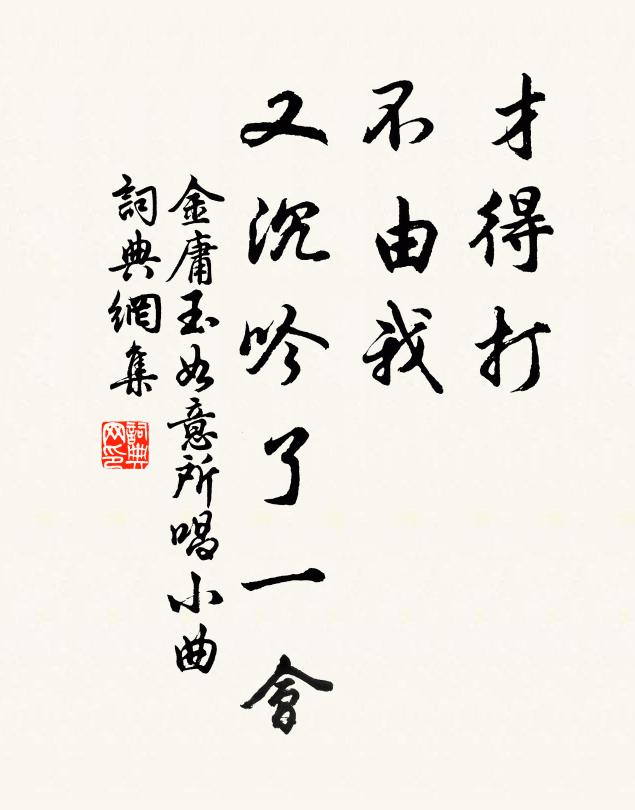 才得打
不由我
又沉吟了一會
金庸玉如意所唱小曲
詞典網集
詞典
网印